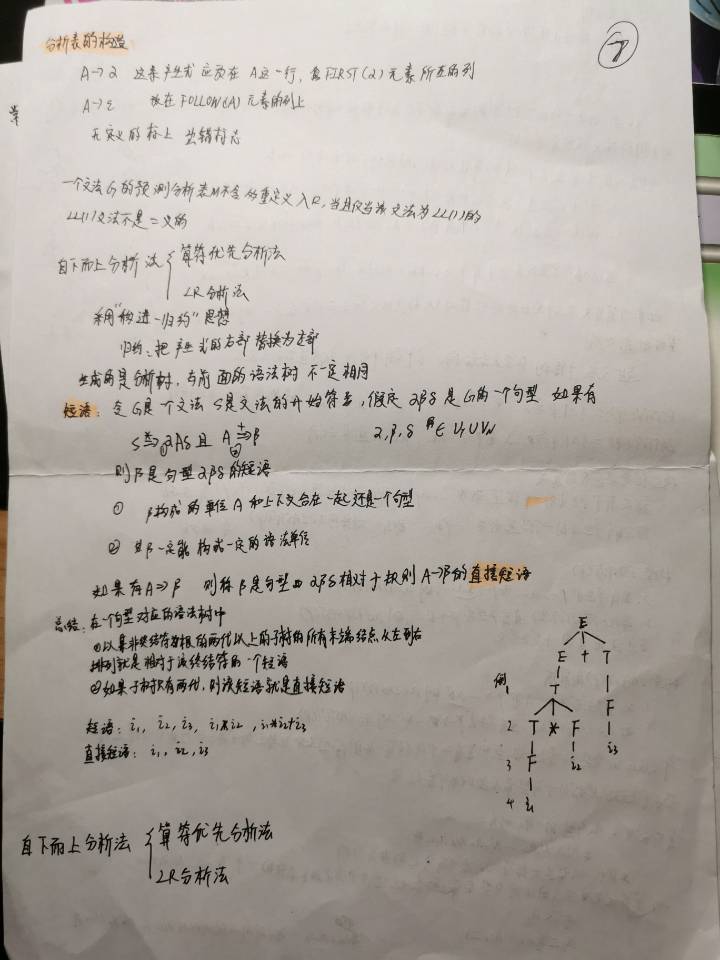 ⑦
分析表的构造
A→α 这条产生式应放在A这一行,含FIRST(α)元素所在的列
A→ε 放在FOLLOW(A)元素的列上
无定义的标上出错标志
一个文法G的预测分析表M不含多重定义入口,当且仅当该文法为LL(1)的
LL(1)文法不是二义的
自下而上分析法 { 算符优先分析法
LR分析法
采用"移进-归约"思想
归约:把产生式的右部替换为左部
生成的是分析树,与前面的语法树不一定相同
短语:令G是一个文法 S是文法的开始符号,假定αβδ是G的一个句型 如果有
S*⇒①αAδ且 A+⇒②β α,β,δ∈VT∪VN
则β是句型αβδ的短语
① β构成的单位A和上下文合在一起还是一个句型
② 且β一定能构成一定的语法单位
如果有A⇒β 则称β是句型αβδ相对于规则A→β的直接短语
总结:在一个句型对应的语法树中
①以某非终结符为根的两代以上的子树的所有末端结点从左到右
排列就是相对于该终结符的一个短语
②如果子树只有两代,则该短语就是直接短语
短语:i1,i2,i3,i1*i2,i1*i2+i3
直接短语:i1,i2,i3
例
E
1 E + T
T F
2 T * F i3
3 F i2
4 i1
自下而上分析法 { 算符优先分析法
LR分析法